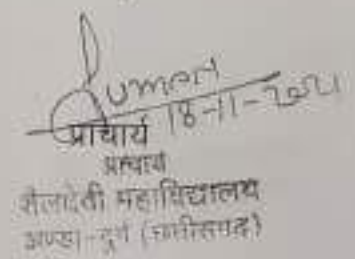 Suman
18-11-2021
प्राचार्य
प्राचार्य
शैलदेवी महाविद्यालय
अण्डा-दुर्ग (छत्तीसगढ़)